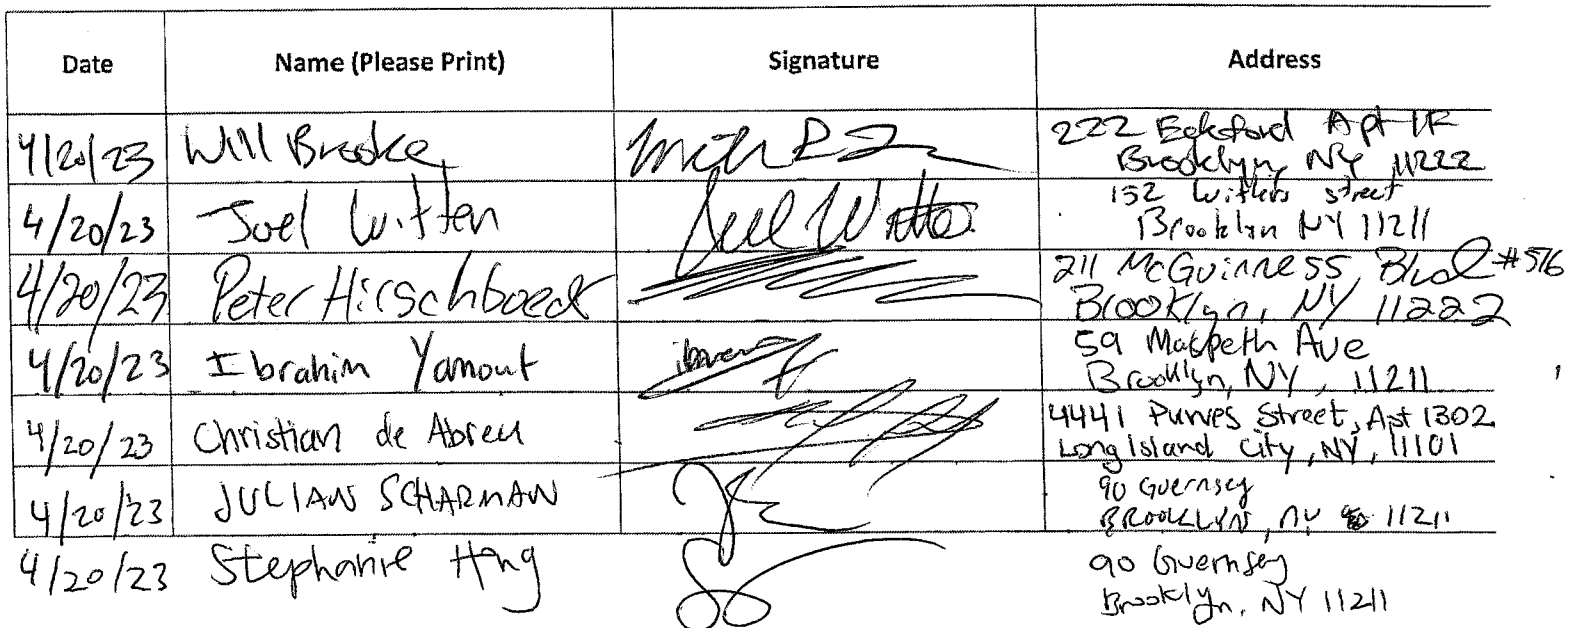 Date Name (Please Print) Signature Address
4/20/23 Will Brooke 222 Eckford Apt 1R
Brooklyn, NY 11222
4/20/23 Joel Witten Joel Witten 152 Withers street
Brooklyn NY 11211
4/20/23 Peter Hirschboeck 211 McGuinness Blvd #516
Brooklyn, NY 11222
4/20/23 Ibrahim Yamout 59 Maspeth Ave
Brooklyn, NY, 11211
4/20/23 Christian de Abreu 4441 Purves Street, Apt 1302
Long Island City, NY, 11101
4/20/23 JULIAN SCHARMAN 90 Guernsey
BROOKLYN, NY 11211
4/20/23 Stephanie 90 Guernsey
Brooklyn, NY 11211